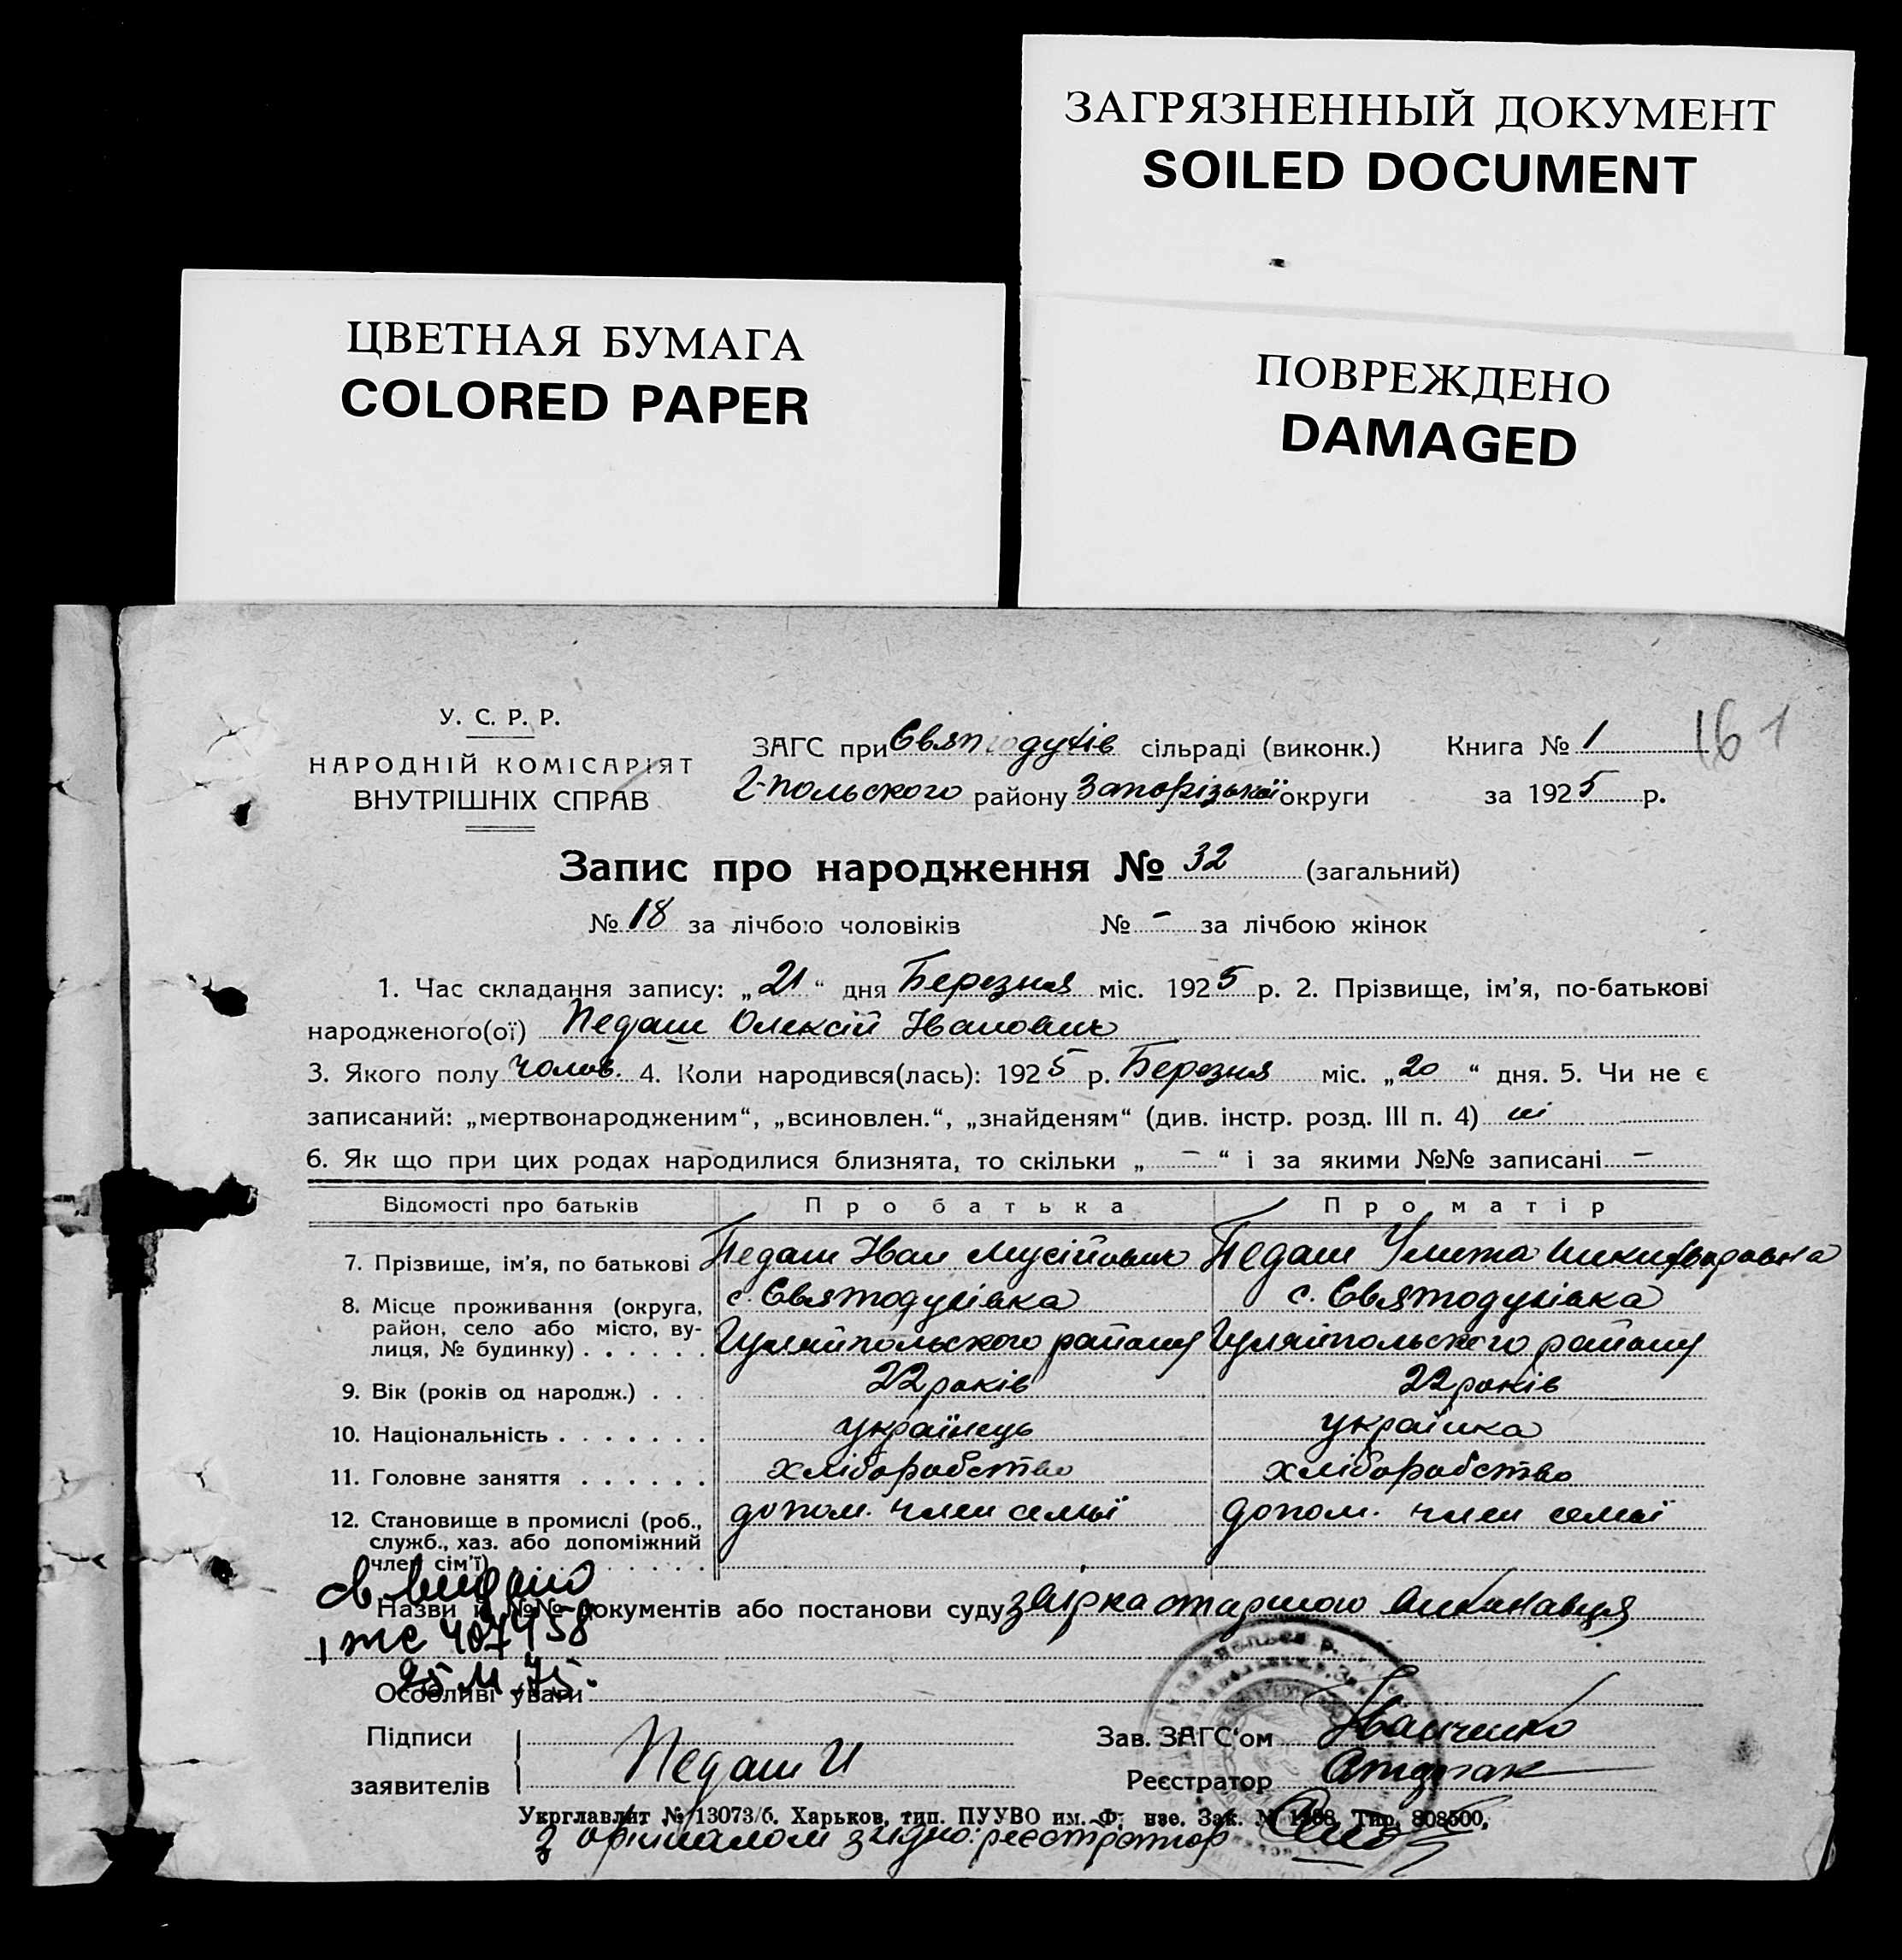 ЗАГРЯЗНЕННЫЙ ДОКУМЕНТ
SOILED DOCUMENT
ЦВЕТНАЯ БУМАГА
COLORED PAPER
ПОВРЕЖДЕНО
DAMAGED
У. С. Р. Р.
НАРОДНІЙ КОМІСАРІЯТ
ВНУТРІШНІХ СПРАВ
161
ЗАГС при Святодухів сільраді (виконк.) Книга № 1
Г-польского району Запорізької округи за 1925 р.
Запис про народження № 32 (загальний)
№ 18 за лічбою чоловіків № - за лічбою жінок
1. Час складання запису: „21“ дня Березня міс. 1925 р. 2. Прізвище, ім’я, по-батькові
народженого(ої) Педаш Олексій Іванович
3. Якого полу чолов. 4. Коли народився(лась): 1925 р. Березня міс. „20“ дня. 5. Чи не є
записаний: „мертвонародженим“, „всиновлен.“, „знайденям“ (див. інстр. розд. III п. 4) ні
6. Як що при цих родах народилися близнята, то скільки „ - “ і за якими №№ записані -
Відомості про батьків Про батька Про матір
7. Прізвище, ім’я, по батькові Педаш Іван Мусійович Педаш Улита Никифоровна
8. Місце проживання (округа, с. Святодухівка с. Святодухівка
район, село або місто, ву-
лиця, № будинку) . . . . . . Гуляйпольского району Гуляйпольского району
9. Вік (років од народж.) . . . 22 років 22 років
10. Національність . . . . . . . українець українка
11. Головне заняття . . . . . . хліборобство хліборобство
12. Становище в промислі (роб., допом. член семьї допом. член семьї
служб., хаз. або допоміжний
член сім’ї) . . . . . . . . . .
св. видано
Назви й №№ документів або постанови суду звірка старшого виконавця
1 же 407458
25.11.75.
Особливі уваги
Підписи
заявителів Педаш И
Зав. ЗАГС‘ом Іванченко
Реєстратор
Укрглавлит № 13073/б. Харьков, тип. ПУУВО им. Ф. Зак. № Тир. 808500.
З оригіналом згідно: реєстратор